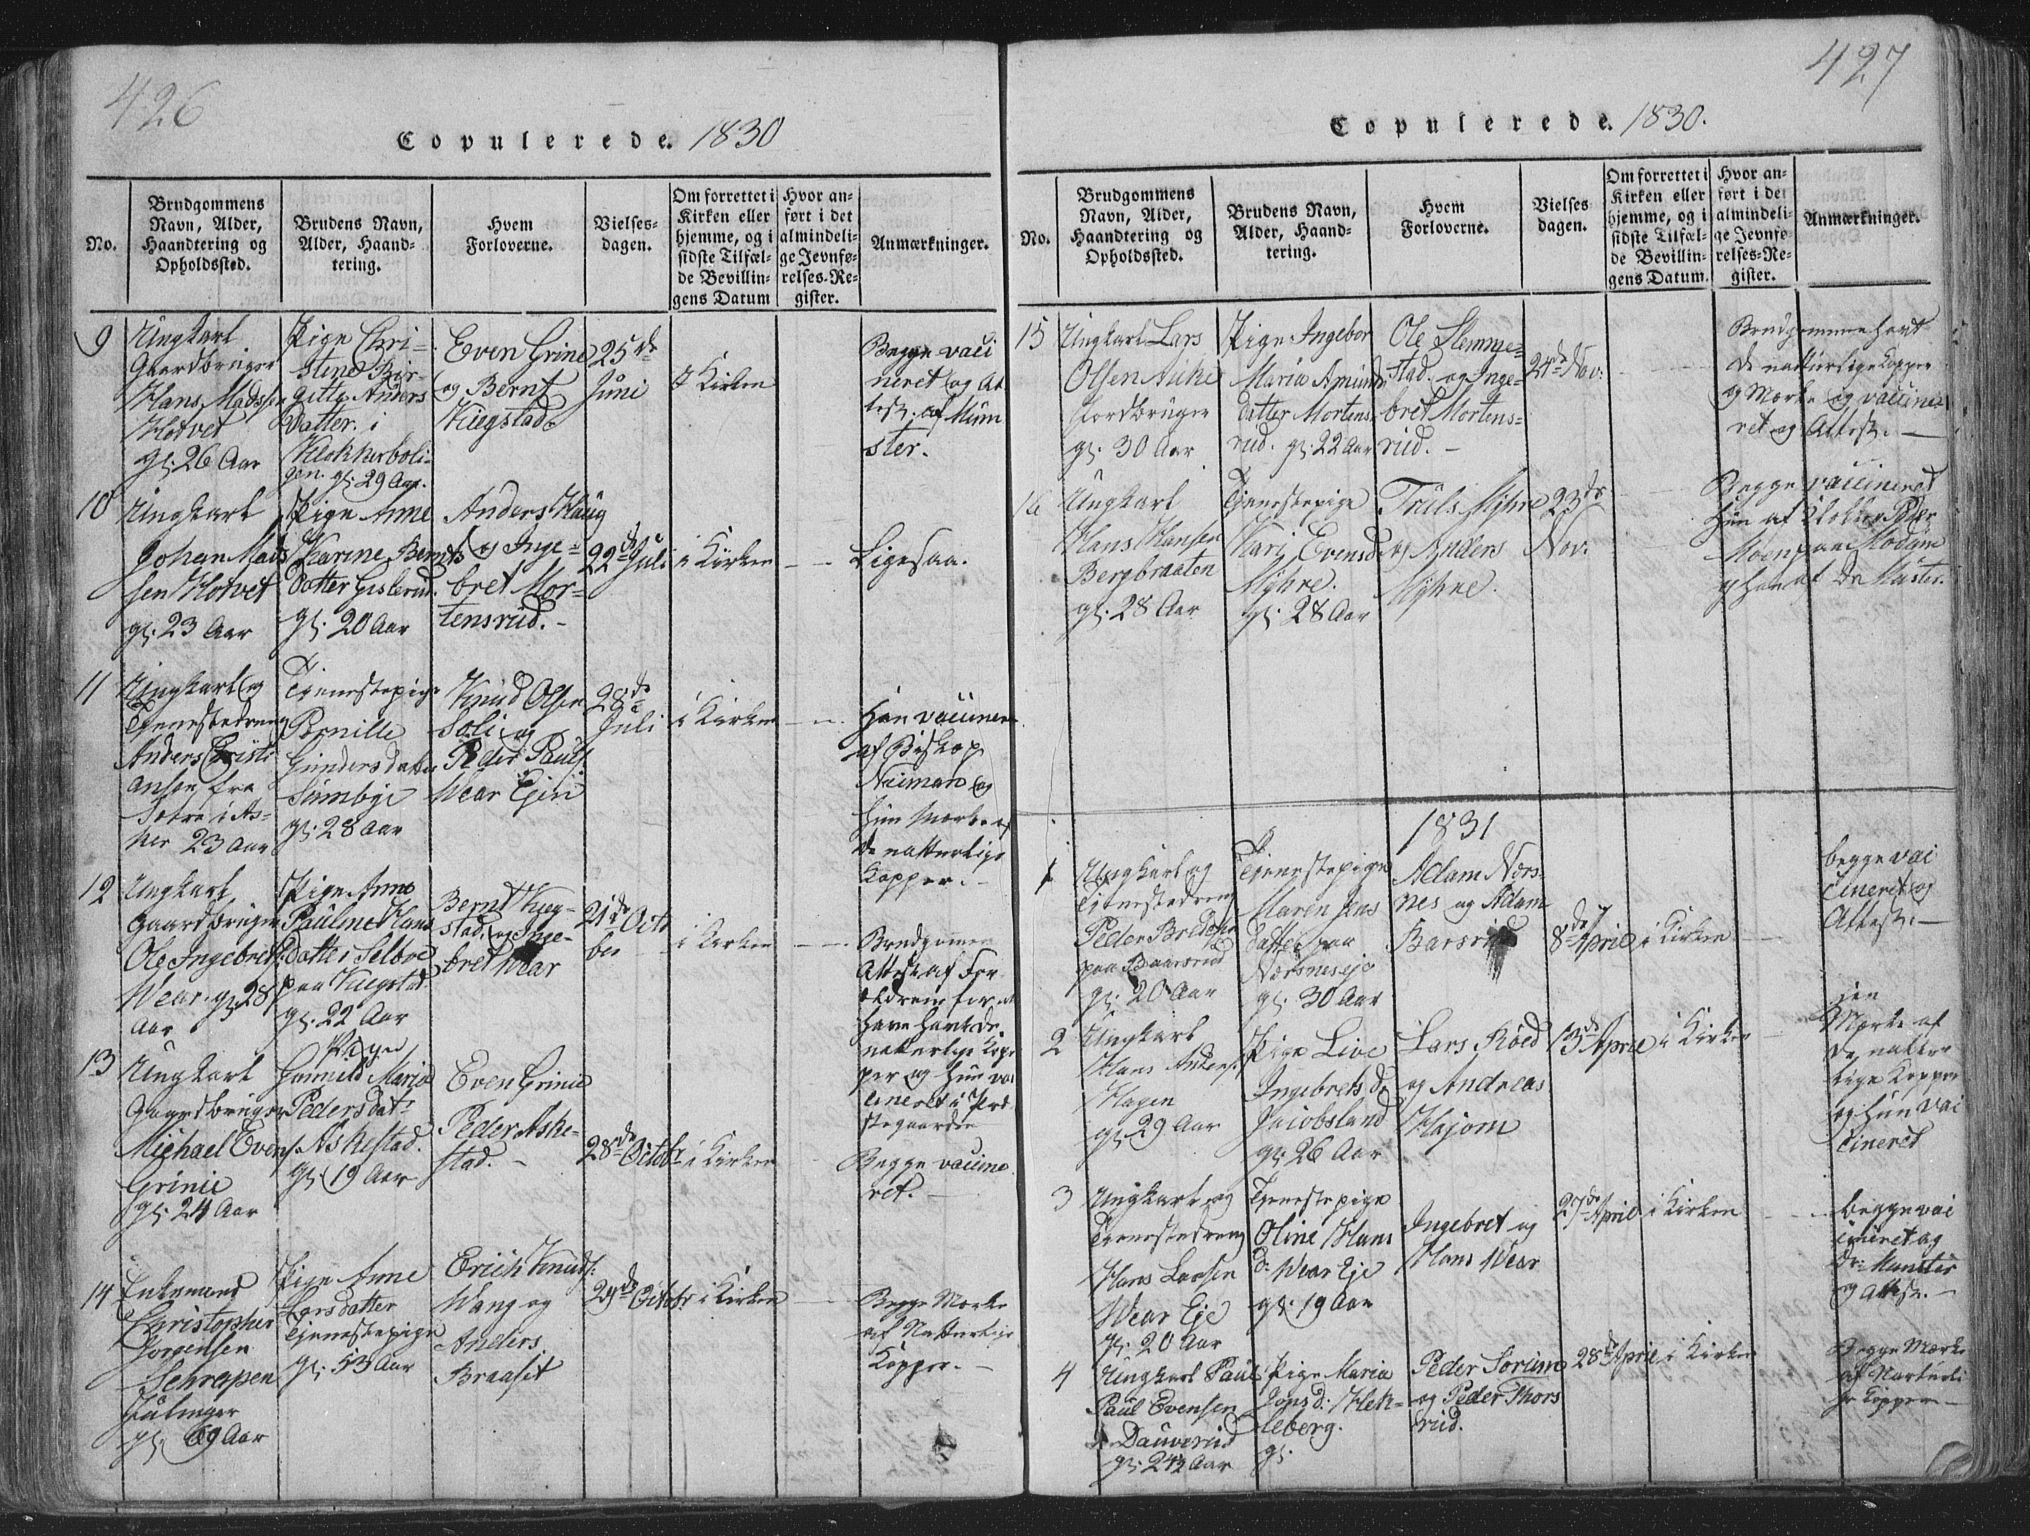 426
Copulerede. 1830
No.
Brudgommens
Navn, Alder,
Haandtering og
Opholdssted.
Brudens Navn,
Alder, Haand-
tering.
Hvem
Forloverne.
Vielses-
dagen.
Om forrettet i
Kirken eller
hjemme, og i
sidste Tilfæl-
de Bevillin-
gens Datum
Hvor an-
ført i det
almindeli-
ge Jevnfø-
relses-Re-
gister.
Anmærkninger.
9
Ungkarl
Gaardbruger
Hans Madssen
Hotvet
gl. 26 Aar
Pige Chri-
stine Bir-
gitte Anders
datter i
Klokkerboli-
gen. gl. 29 Aar.
Even Grine
og Bernt
Kiegstad
25de
Juni
I Kirken
Begge vacci
neret og At
test. af Mün
ster.
10
Ungkarl
Johan Mads
sen Hotvet
gl. 23 Aar
Pige Anne
Karine Bernts
datter Gislerud.
gl. 20 Aar
Anders Haug
og Inge-
bret Mor-
tensrud. -
22de Juli
i Kirken
Ligesaa.
11
Ungkarl og
Tjenestedreng
Anders Christi
ansen fra
i As-
ker 23 Aar
Tjenestepige
Pernille
Gundersdatter
Sümbye
gl. 28 Aar
Knud Olsen
Soli og
Peder Pauls.
Wear Ejeri
28de
Juli
i Kirken
Han vaccineret
af Biskop
Neuman og
hun Mærke af
de natturlige
Kopper. -
12
Ungkarl
Gaardbruger
Ole Ingebrets.
Wear. gl. 28
Aar
Pige Anne
Pauline Hans
datter Selvve
paa Kiegstad
gl. 22 Aar
Bernt Kieg-
stad, og Inge-
bret Wear
21de Octo
ber
i Kirken
Brudgommen
Attest af For
ældrene for at
have havt de
naturlige Kop
per og hun va
cineret i Præ
stegaarden
13
Ungkarl
Gaardbruger
Michael Evens.
Grinie
gl. 24 Aar
Pigen
Gunnild Maria
Pedersdatr
Askestad.
gl. 19 Aar
Even Grinie
Peder Aske-
stad. -
28de Octobr
i Kirken
Begge vaccine
ret. -
14
Enkemand
Christopher
Jorgensen
Schrepen
gl. 69 Aar
Pige Anne
Larsdatter
Tjenestepige
gl. 53 Aar
Erich Knuds:
Wang og
Anders
Braaset
29de Octobr
i Kirken
Begge Mærke
af Natturlige
Kopper. -
427
Copulerede. 1830.
No.
Brudgommens
Navn, Alder,
Haandtering og
Opholdssted.
Brudens Navn,
Alder, Haand-
tering.
Hvem
Forloverne.
Vielses
dagen.
Om forrettet i
Kirken eller
hjemme, og i
sidste Tilfæl-
de Bevillin-
gens Datum.
Hvor an-
ført i det
almindeli-
ge Jevnfø-
relses-Re-
gister.
Anmærkninger.
15
Ungkarl Lars
Olsen
Jordbruger
gl. 30 Aar
Pige Ingebor
Maria Amunds
datter Mortens
rud. gl. 22 Aar
Ole Slemme-
stad. og Inge-
bret Mortens-
rud. -
21de Nov:
Brudgommen havt
de naturlige Kopper
og Mærke og vaccine
ret og Attest. -
16
Ungkarl
Hans Hansen
Bergbraaten
gl. 28 Aar
Tjenestepige
Kari Evensd
Myhre.
gl. 28 Aar
Truls Myhre
og Anders
Myhre.
23de
Nov.
Begge vaccineret
Hun af Klokker Peder
Moen paa Modum
og han af Dr Münster.
1831
1
Ungkarl og
Tjenestedreng
Peder
paa Baarsrud
gl. 20 Aar
Tjenestepige
Maren Jens
datter paa
Nærsnes eje
gl. 30 Aar
Adam Nærs
nes og Adam
Barsrud
8de April
i Kirken
begge vac
cineret og
Attest. -
2
Ungkarl
Hans Anders.
Hagen
gl. 29 Aar
Pige Live
Ingebrets D
Jacobsland
gl. 26 Aar
Lars Röed
og Andreas
Hajorn
13de April
i Kirken
Mærke af
de nattur
lige Kopper
og hun vac
cineret
3
Ungkarl og
Tjenestedreng
Hans Larsen
Wear Eje
gl. 20 Aar
Tjenestepige
Oline Hans
d: Wear Eje
gl. 19 Aar
Ingebret og
Hans Wear
27de April
i Kirken
begge vac
cineret og
Dr: Munster
og Attest. -
4
Ungkarl Paul
Paul Evensen
Dauverud
gl. 24½ Aar
Pige Maria
Jonsd: Hek-
leberg.
gl.
Peder Sorum
og Peder Thors
rud.
28de April
i Kirken
Begge Mærke
af Naturli
ge Kopper -